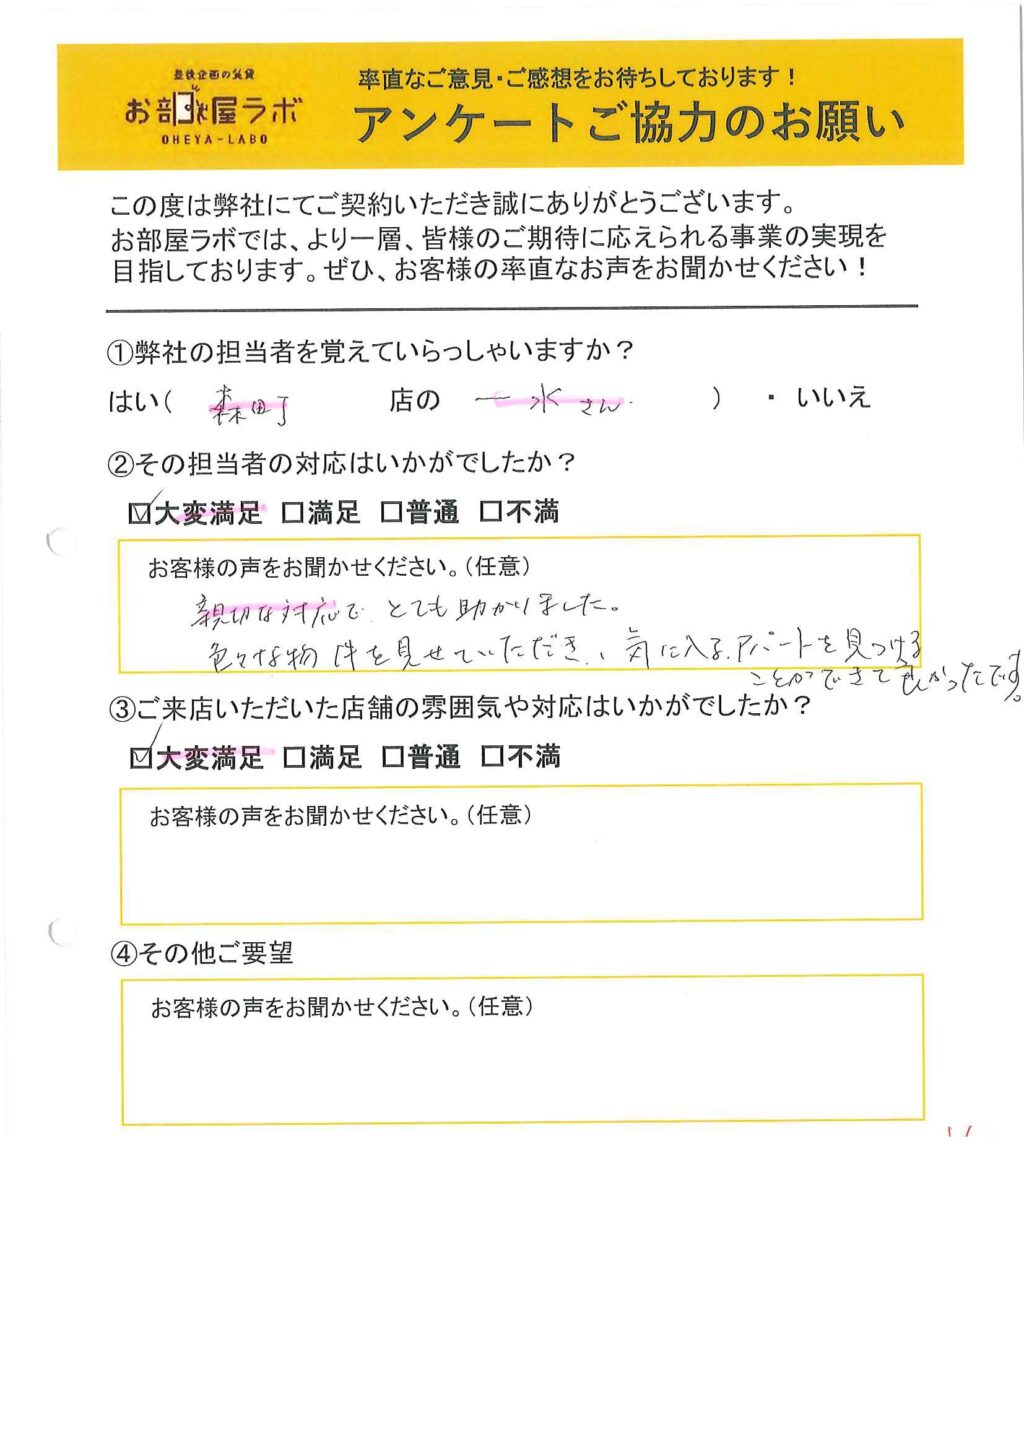 豊後企画の賃貸
お部屋ラボ
OHEYA-LABO
率直なご意見・ご感想をお待ちしております！
アンケートご協力のお願い
この度は弊社にてご契約いただき誠にありがとうございます。
お部屋ラボでは、より一層、皆様のご期待に応えられる事業の実現を
目指しております。ぜひ、お客様の率直なお声をお聞かせください！
①弊社の担当者を覚えていらっしゃいますか？
はい（ 森町 店の 一水さん ）・いいえ
②その担当者の対応はいかがでしたか？
☑大変満足 □満足 □普通 □不満
お客様の声をお聞かせください。（任意）
親切な対応で とても助かりました。
色々な物件を見せていただき、気に入るアパートを見つける
ことができて良かったです。
③ご来店いただいた店舗の雰囲気や対応はいかがでしたか？
☑大変満足 □満足 □普通 □不満
お客様の声をお聞かせください。（任意）
④その他ご要望
お客様の声をお聞かせください。（任意）